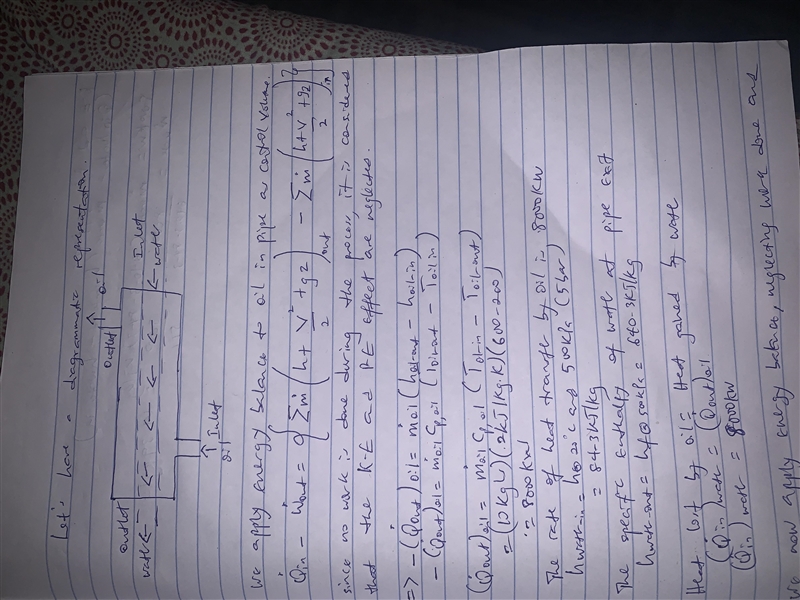 Let's have a diagrammatic representation.
outlet
water
outlet
oil
Inlet
water
Inlet
oil
We apply energy balance to oil in pipe a control volume.
Q̇in - Ẇout = {Σṁ (h + V²/2 + gz)out - Σṁ (h + V²/2 + gz)in}
since no work is done during the process, it is considered
that the K·E and P.E effect are neglected.
=> -(Q̇out)oil = ṁoil (hoil-out - hoil-in)
-(Q̇out)oil = ṁoil Cp,oil (Toil-out - Toil in)
(Q̇out)oil = ṁoil Cp,oil (Toil-in - Toil-out)
= (10kg/s) (2kJ/kg·K) (600-200)
= 8000kW
The rate of heat transfer by oil is 8000KW
hwater-in = h@20°C and 500kPa (5bar)
= 84.3KJ/kg
The specific enthalpy of water at pipe exit
hwater-out = hf@500kPa = 640.3KJ/kg
Heat lost by oil = Heat gained by water
(Q̇in)water = (Q̇out)oil
(Q̇in)water = 8000KW
We now apply energy balance, neglecting work done and